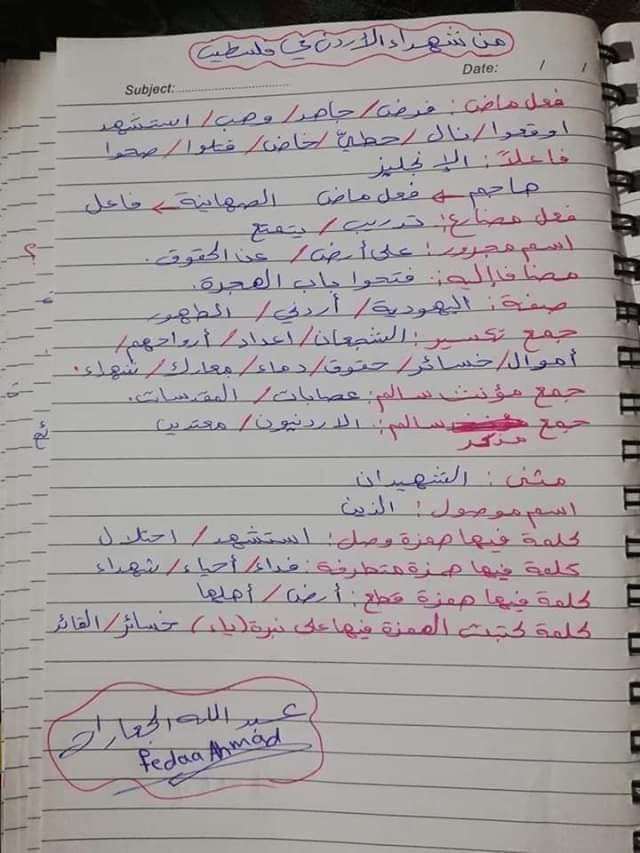 من شهداء الأردن في فلسطين
Date: / /
Subject:
فعل ماض: فرض/ جاهد/ وهب/ استشهد
اوقعوا/ نال/ حظيّ/ خاض/ قتلوا/ ضحوا
فاعلاً: الإنجليز
هاجم ← فعل ماض الصهاينة ← فاعل
فعل مضارع: تدريب/ يتمتع
اسم مجرور: على أرض/ عن الحقوق.
مضافا إليه: فتحوا باب الهجرة.
صفة: اليهودية/ أردني/ الطهور
جمع تكسير: الشجعان/ اعداد/ أرواحهم/
أموال/ خسائر/ حقوق/ دماء/ معارك/ شهداء.
جمع مؤنث سالم: عصابات/ المقدسات.
جمع سالم: الاردنيون/ معتدين
مذكر
مثنى: الشهيدان
اسم موصول: الذين
كلمة فيها همزة وصل: استشهد/ احتلال
كلمة فيها همزة متطرفة: فداء/ أحياء/ شهداء
كلمة فيها همزة قطع: أرض/ أهلها
كلمة كتبت الهمزة فيها على نبرة (ياء) خسائر/ القائد
عبد الله الجعارات
Fedaa Ahmad